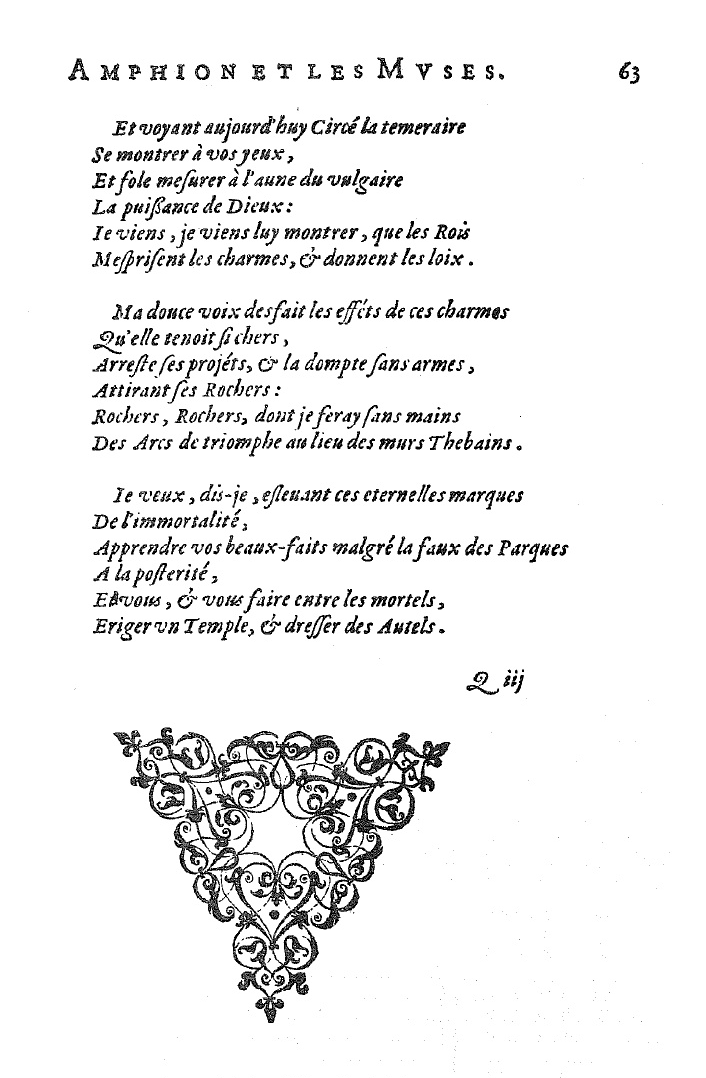 AMPHION ET LES MVSES. 63
Et voyant aujourd'huy Circé la temeraire
Se montrer à vos yeux,
Et fole meſurer à l'aune du vulgaire
La puiſſance de Dieux :
Ie viens, je viens luy montrer, que les Rois
Meſpriſent les charmes, & donnent les loix.
Ma douce voix desfait les efféts de ces charmes
Qu'elle tenoit ſi chers,
Arreſte ſes projéts, & la dompte ſans armes,
Attirant ſes Rochers :
Rochers, Rochers, dont je feray ſans mains
Des Arcs de triomphe au lieu des murs Thebains.
Ie veux, dis-je, eſleuant ces eternelles marques
De l'immortalité,
Apprendre vos beaux-faits malgré la faux des Parques
A la poſterité,
Et vous, & vous faire entre les mortels,
Eriger vn Temple, & dreſſer des Autels.
Q iij